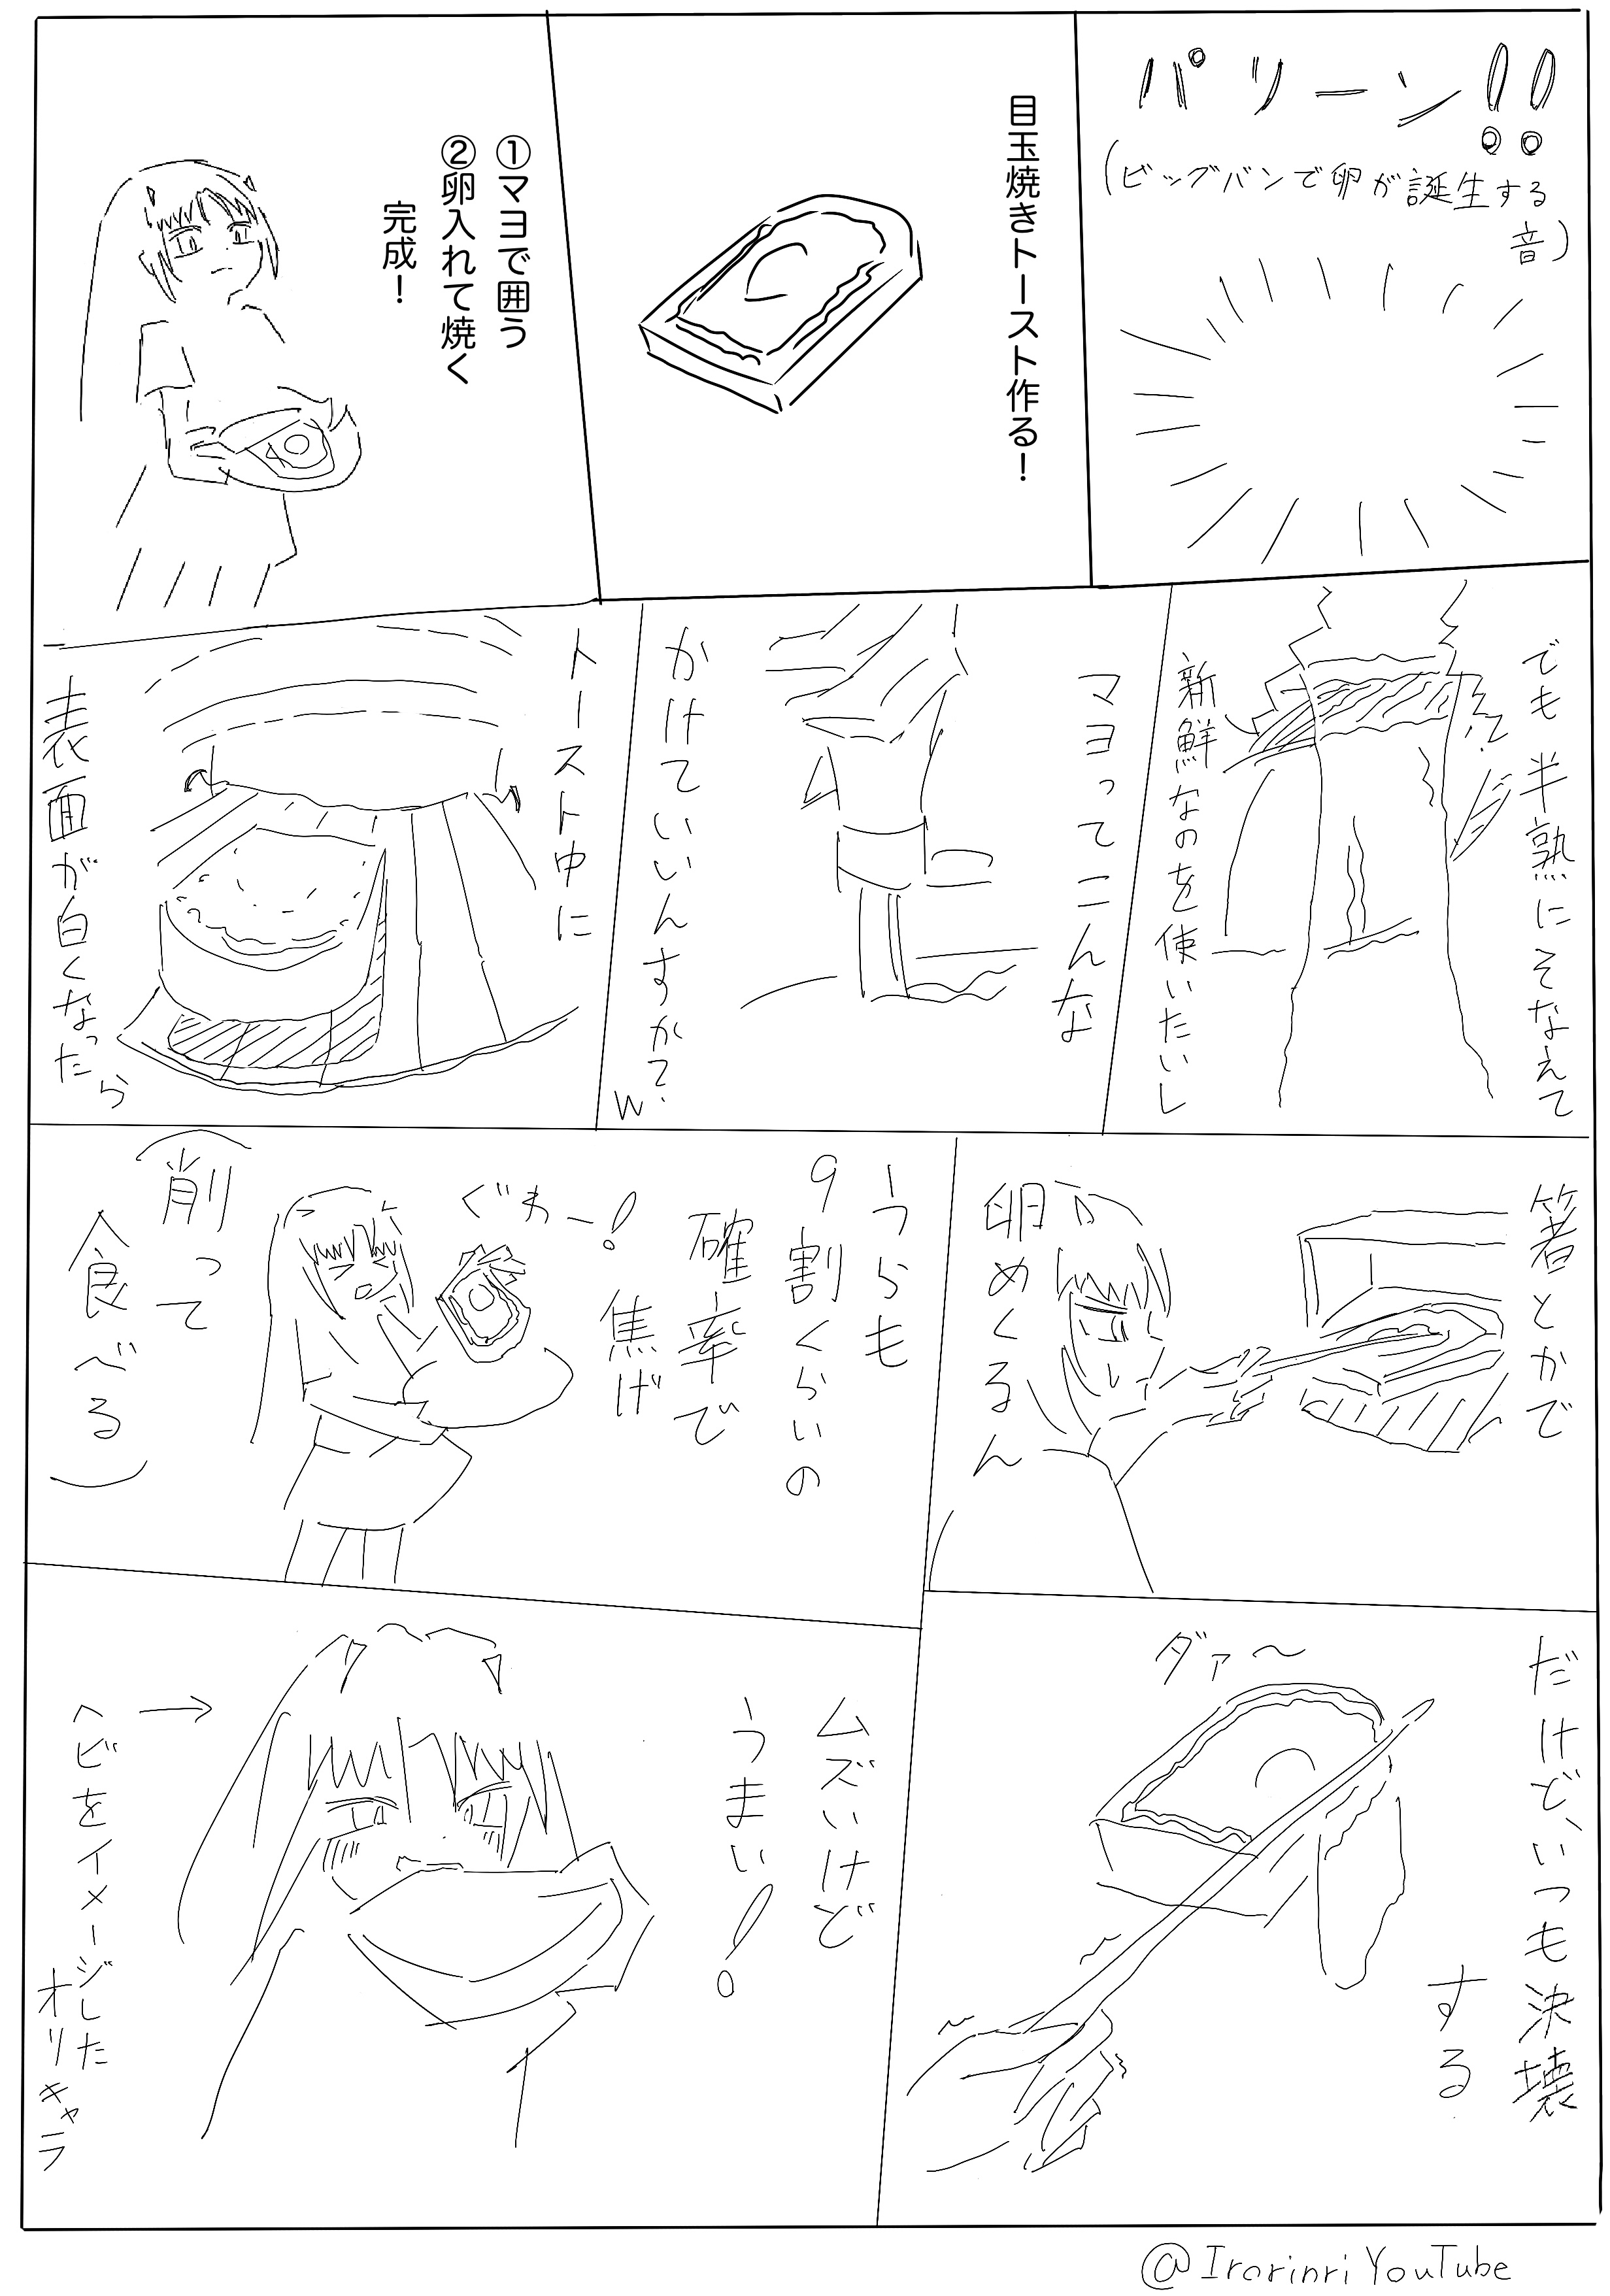 パリーン!!
(ビッグバンで卵が誕生する
音)
目玉焼きトースト作る！
①マヨで囲う
②卵入れて焼く
完成！
でも半熟にそなえて
新鮮なのを使いたいし
マヨってこんな
かけていいんすか?
w
トースト中に
表面が白くなったら
箸とかで
卵めくるん
うらも
9割くらいの
確率で
焦げ
ぐわー!
(削って
食べる)
だけど、いつも決壊
する
ダァ〜
ムズいけど
うまい!
→
ヘビをイメージした
オリキャラ
@Irorinri YouTube